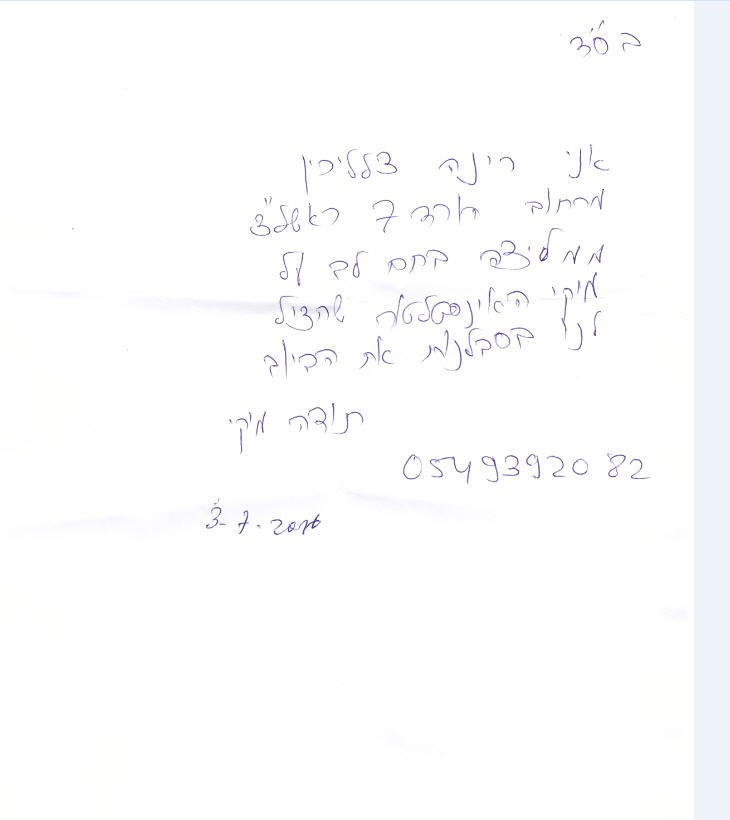 בס"ד
אני רינה צלליכין
מרחוב הורד 7 ראשל"צ
ממליצה בחום לב על
מיקי האינסטלטור שהציל
לנו בסבלנות את הביוב
תודה מיקי
0549392082
3-7-2016